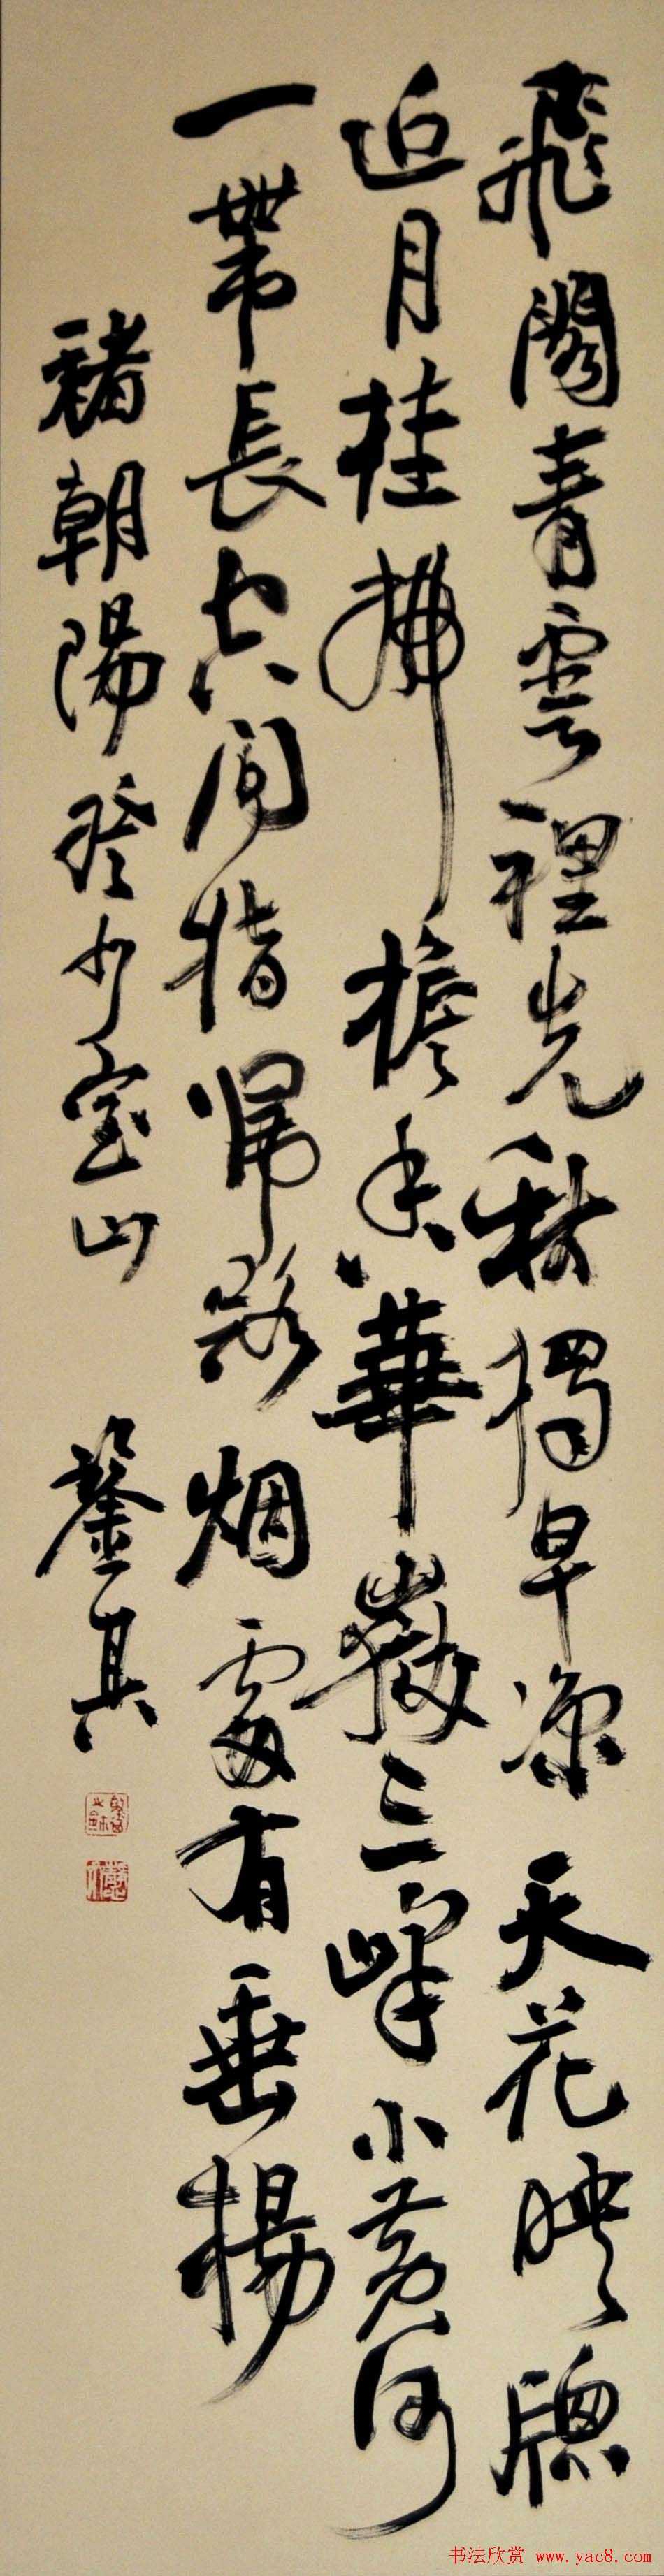 飛閣青雲裡先秋獨早凉天花映牕
近月桂拂檐香華嶽三峰小黃河
一帶長空间指歸路烟處有垂楊
褚朝陽登少室山
鑒其
书法欣赏 www.yac8.com